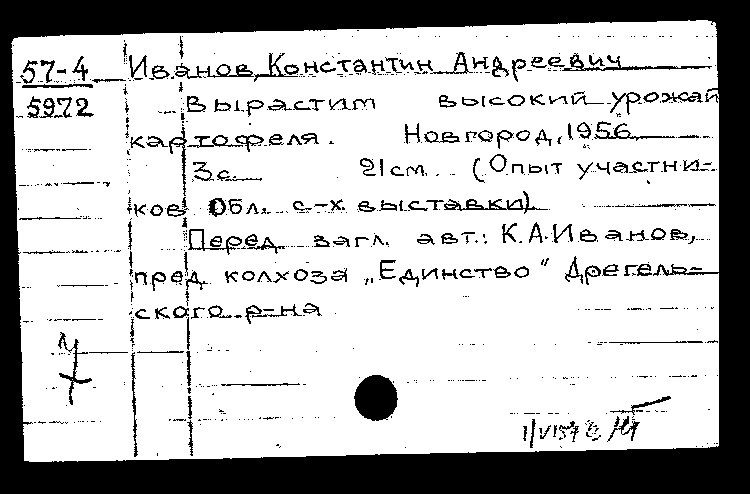 57-4 Иванов, Константин Андреевич
5972 Вырастим высокий урожай
картофеля. Новгород, 1956
3с. 21см. (Опыт участни-
ков Обл. с-х. выставки).
Перед загл. авт.: К.А.Иванов,
пред. колхоза „Единство“ Дрегель-
ского р-на